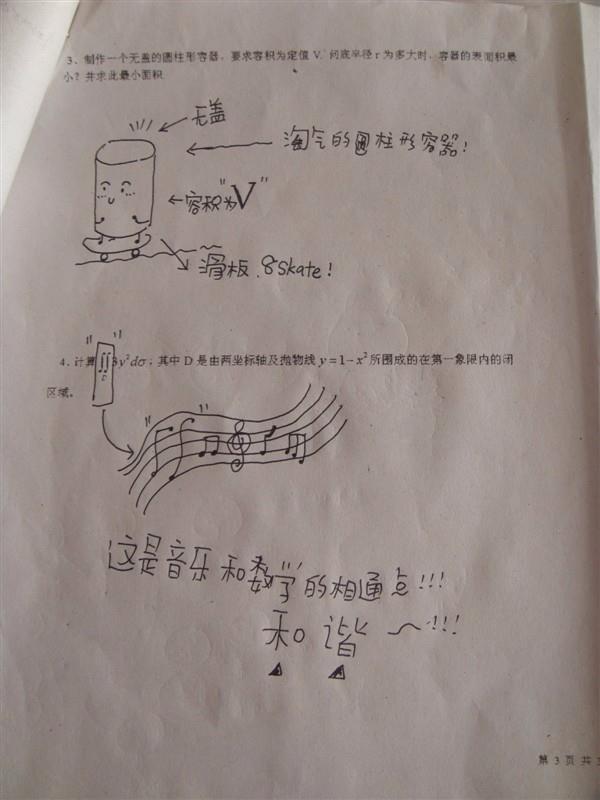 3、制作一个无盖的圆柱形容器，要求容积为定值 V，问底半径 r 为多大时，容器的表面积最
小？并求此最小面积.
无盖
淘气的圆柱形容器！
容积为"V"
滑板.Skate！
4、计算∬3y²dσ，其中 D 是由两坐标轴及抛物线 y=1-x² 所围成的在第一象限内的闭
D
区域。
这是音乐和数学的相通点!!!
和谐～!!!
第 3 页 共 3